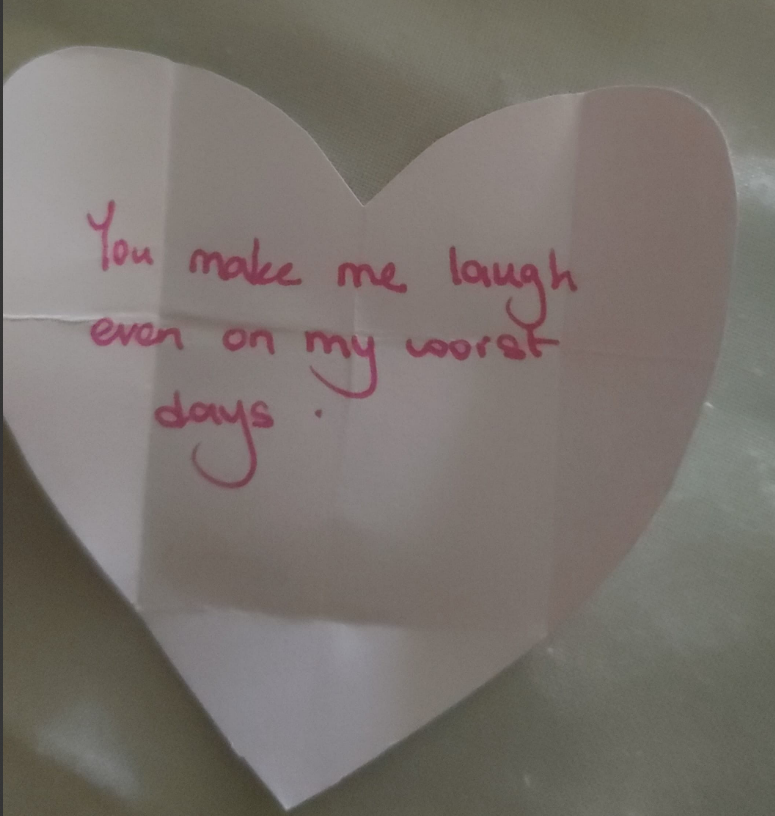 You make me laugh
even on my worst
days.